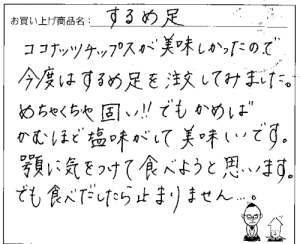 お買い上げ商品名： するめ足
ココナッツチップスが美味しかったので
今度はするめ足を注文してみました。
めちゃくちゃ固い!!でもかめば
かむほど塩味がして美味しいです。
顎に気をつけて食べようと思います。
でも食べだしたら止まりません…。